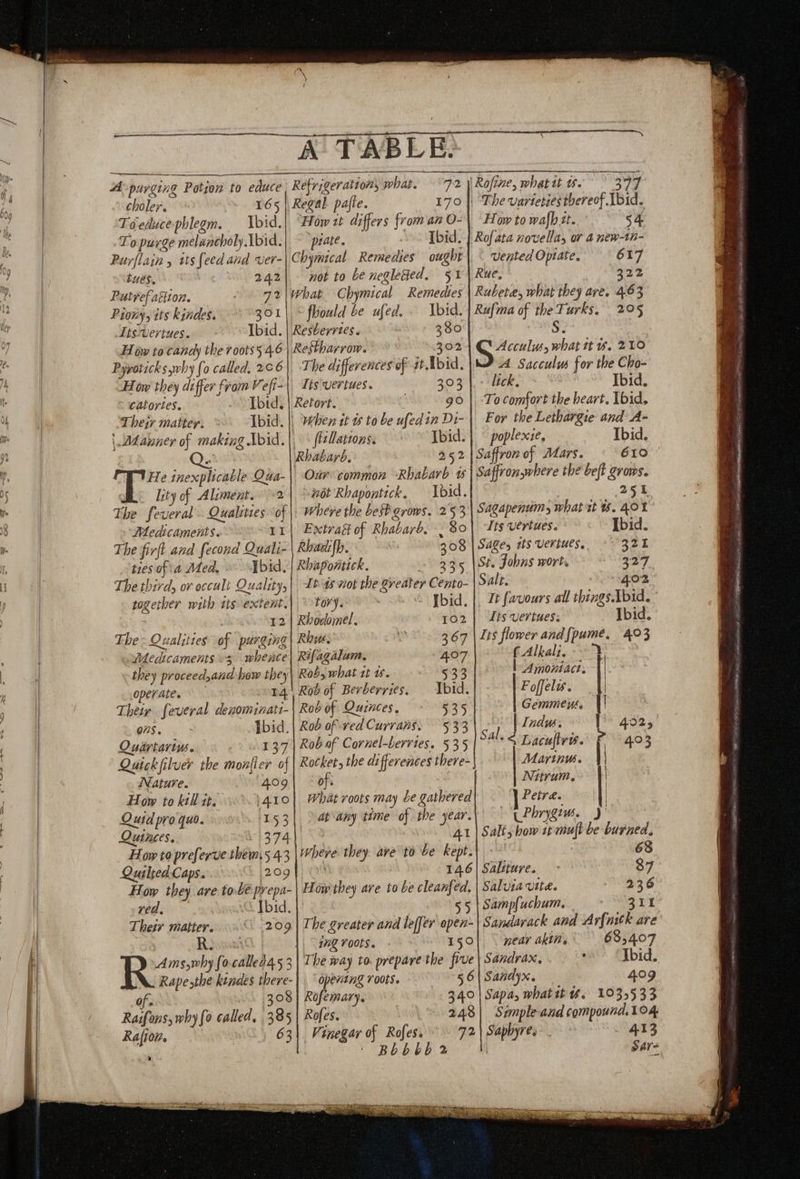 A TABLE.
A purging Potion to educe
choler. 165
To educe phlegm. Ibid.
To purge melancholy. Ibid.
Purſlain, its ſeed and ver-
tues. 242
Putrefaction. 72
Piony, its kindes. 301
Its vertues. Ibid.
How to candy the roots 546
Pyroticks, why ſo called. 206
How they differ from Veſi-
catories. Ibid.
Their matter. Ibid.
Manner of making Ibid.
Q.
THe inexplicable Qua-
lity of Aliment. 2
The ſeveral Qualities of
Medicaments. 11
The firſt and ſecond Quali-
ties of a Med. Ibid.
The third, or occult Quality,
together with its extent.
12
The Qualities of purging
Medicaments; whence
they proceed, and how they
operate. 14
Their ſeveral denominati-
ons. Ibid.
Quartarius. 137
Quickſilver the monſter of
Nature. 409
How to kill it. 410
Quid pro quo. 153
Quinces. 374
How to preſerve them. 543
Quilted Caps. 209
How they are to be prepa-
red. Ibid.
Their matter. 209
R.
RAms, why ſo called 453
Rape, the kindes there-
of. 308
Raiſons, why ſo called. 385
Raſion. 63
Refrigeration, what. 72
Regal paſte. 170
How it differs from an O-
piate. Ibid.
Chymical Remedies ought
not to be neglected. 51
What Chymical Remedies
ſhould be uſed. Ibid.
Resberries. 380
Reſtharrow. 302
The differences of it. Ibid.
Its vertues. 303
Retort. 90
When it is to be uſed in Di-
ſtillations. Ibid.
Rhabarb. 252
Our common Rhabarb is
not Rhapontick. Ibid.
Where the beſt grows. 253
Extract of Rhabarb. 80
Rhadiſh. 308
Rhapontick. 335
It is not the greater Cento-
tory. Ibid.
Rhodomel. 102
Rhus. 367
Riſagalum. 407
Rob, what it is. 533
Rob of Berberries. Ibid.
Rob of Quinces. 535
Rob of red Currans. 533
Rob of Cornel-berries. 535
Rocket, the differences there-
of.
What roots may be gathered
at any time of the year.
41
Where they are to be kept.
146
How they are to be cleanſed.
55
The greater and leſſer open-
ing roots. 150
The way to prepare the five
opening roots. 56
Roſemary. 340
Roſes. 248
Vinegar of Roſes. 72
Roſine, what it is. 377
The varieties thereof. Ibid.
How to waſh it. 54
Roſata novella, or a new-in-
vented Opiate. 617
Rue. 322
Rubetæ, what they are. 463
Ruſma of the Turks. 205
S.
SAcculus, what it is. 210
A Sacculus for the Cho-
lick. Ibid.
To comfort the heart. Ibid.
For the Lethargie and A-
poplexie. Ibid.
Saffron of Mars. 610
Saffron, where the beſt grows.
251
Sagapenum, what it is. 401
Its vertues. Ibid.
Sage, its vertues. 321
St. Johns wort. 327
Salt. 402
It ſavours all things. Ibid.
Its vertues. Ibid.
Its flower and ſpume. 403
Sal.
Alkali.
Amoniaci.
Foſſelis.
Gemmeus.
Indus.
Lacuſtris.
Marinus.
Nitrum.
Petræ.
Phrygius.
402,
403
Salt, how it muſt be burned.
68
Saliture. 87
Salvia vitæ. 236
Sampſuchum. 311
Sandarack and Arſnick are
near akin. 68,407
Sandrax. Ibid.
Sandyx. 409
Sapa, what it is. 103,533
Simple and compound. 104
Saphyre. 413
Bbbbb 2
Sar-